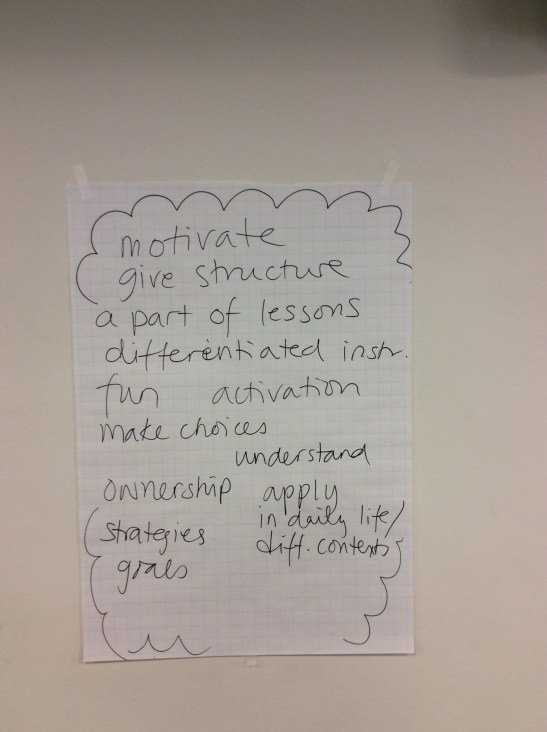 motivate
give structure
a part of lessons
differentiated instr.
fun activation
make choices
understand
ownership apply
strategies in daily life/
goals diff. contexts